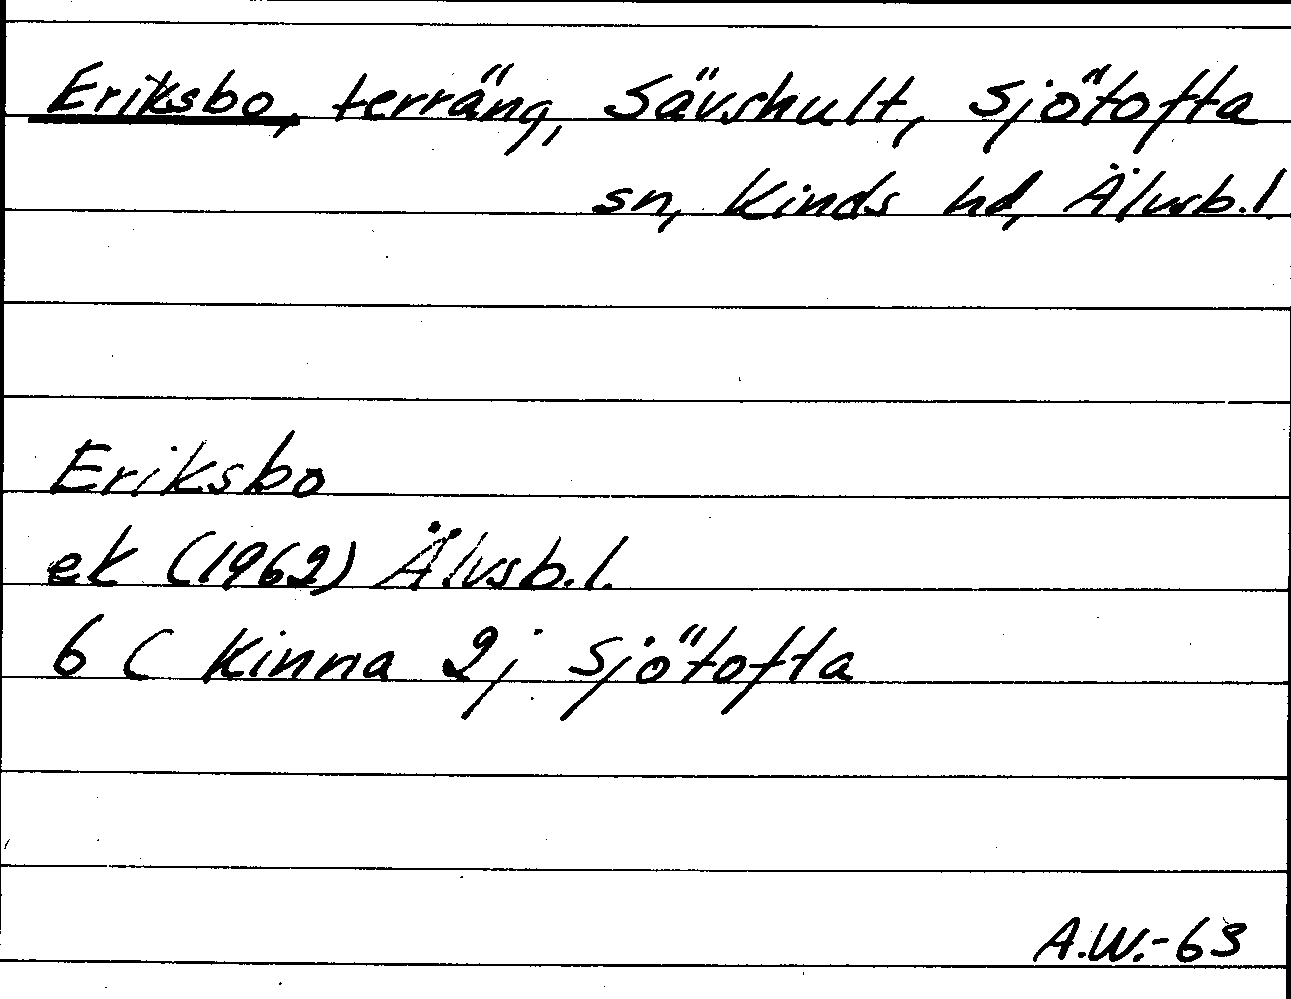 Eriksbo, terräng, Sävshult, Sjötofta
sn, Kinds hd, Älvsb.l.
Eriksbo
ek (1962) Älvsb.l.
6 C Kinna 2j Sjötofta
A.W.-63